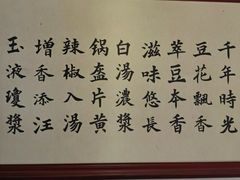 千年時光
豆花飄香
萃豆本香
滋味悠長
白湯濃漿
锅盔片黄
辣椒入湯
增香添汪
玉液瓊漿